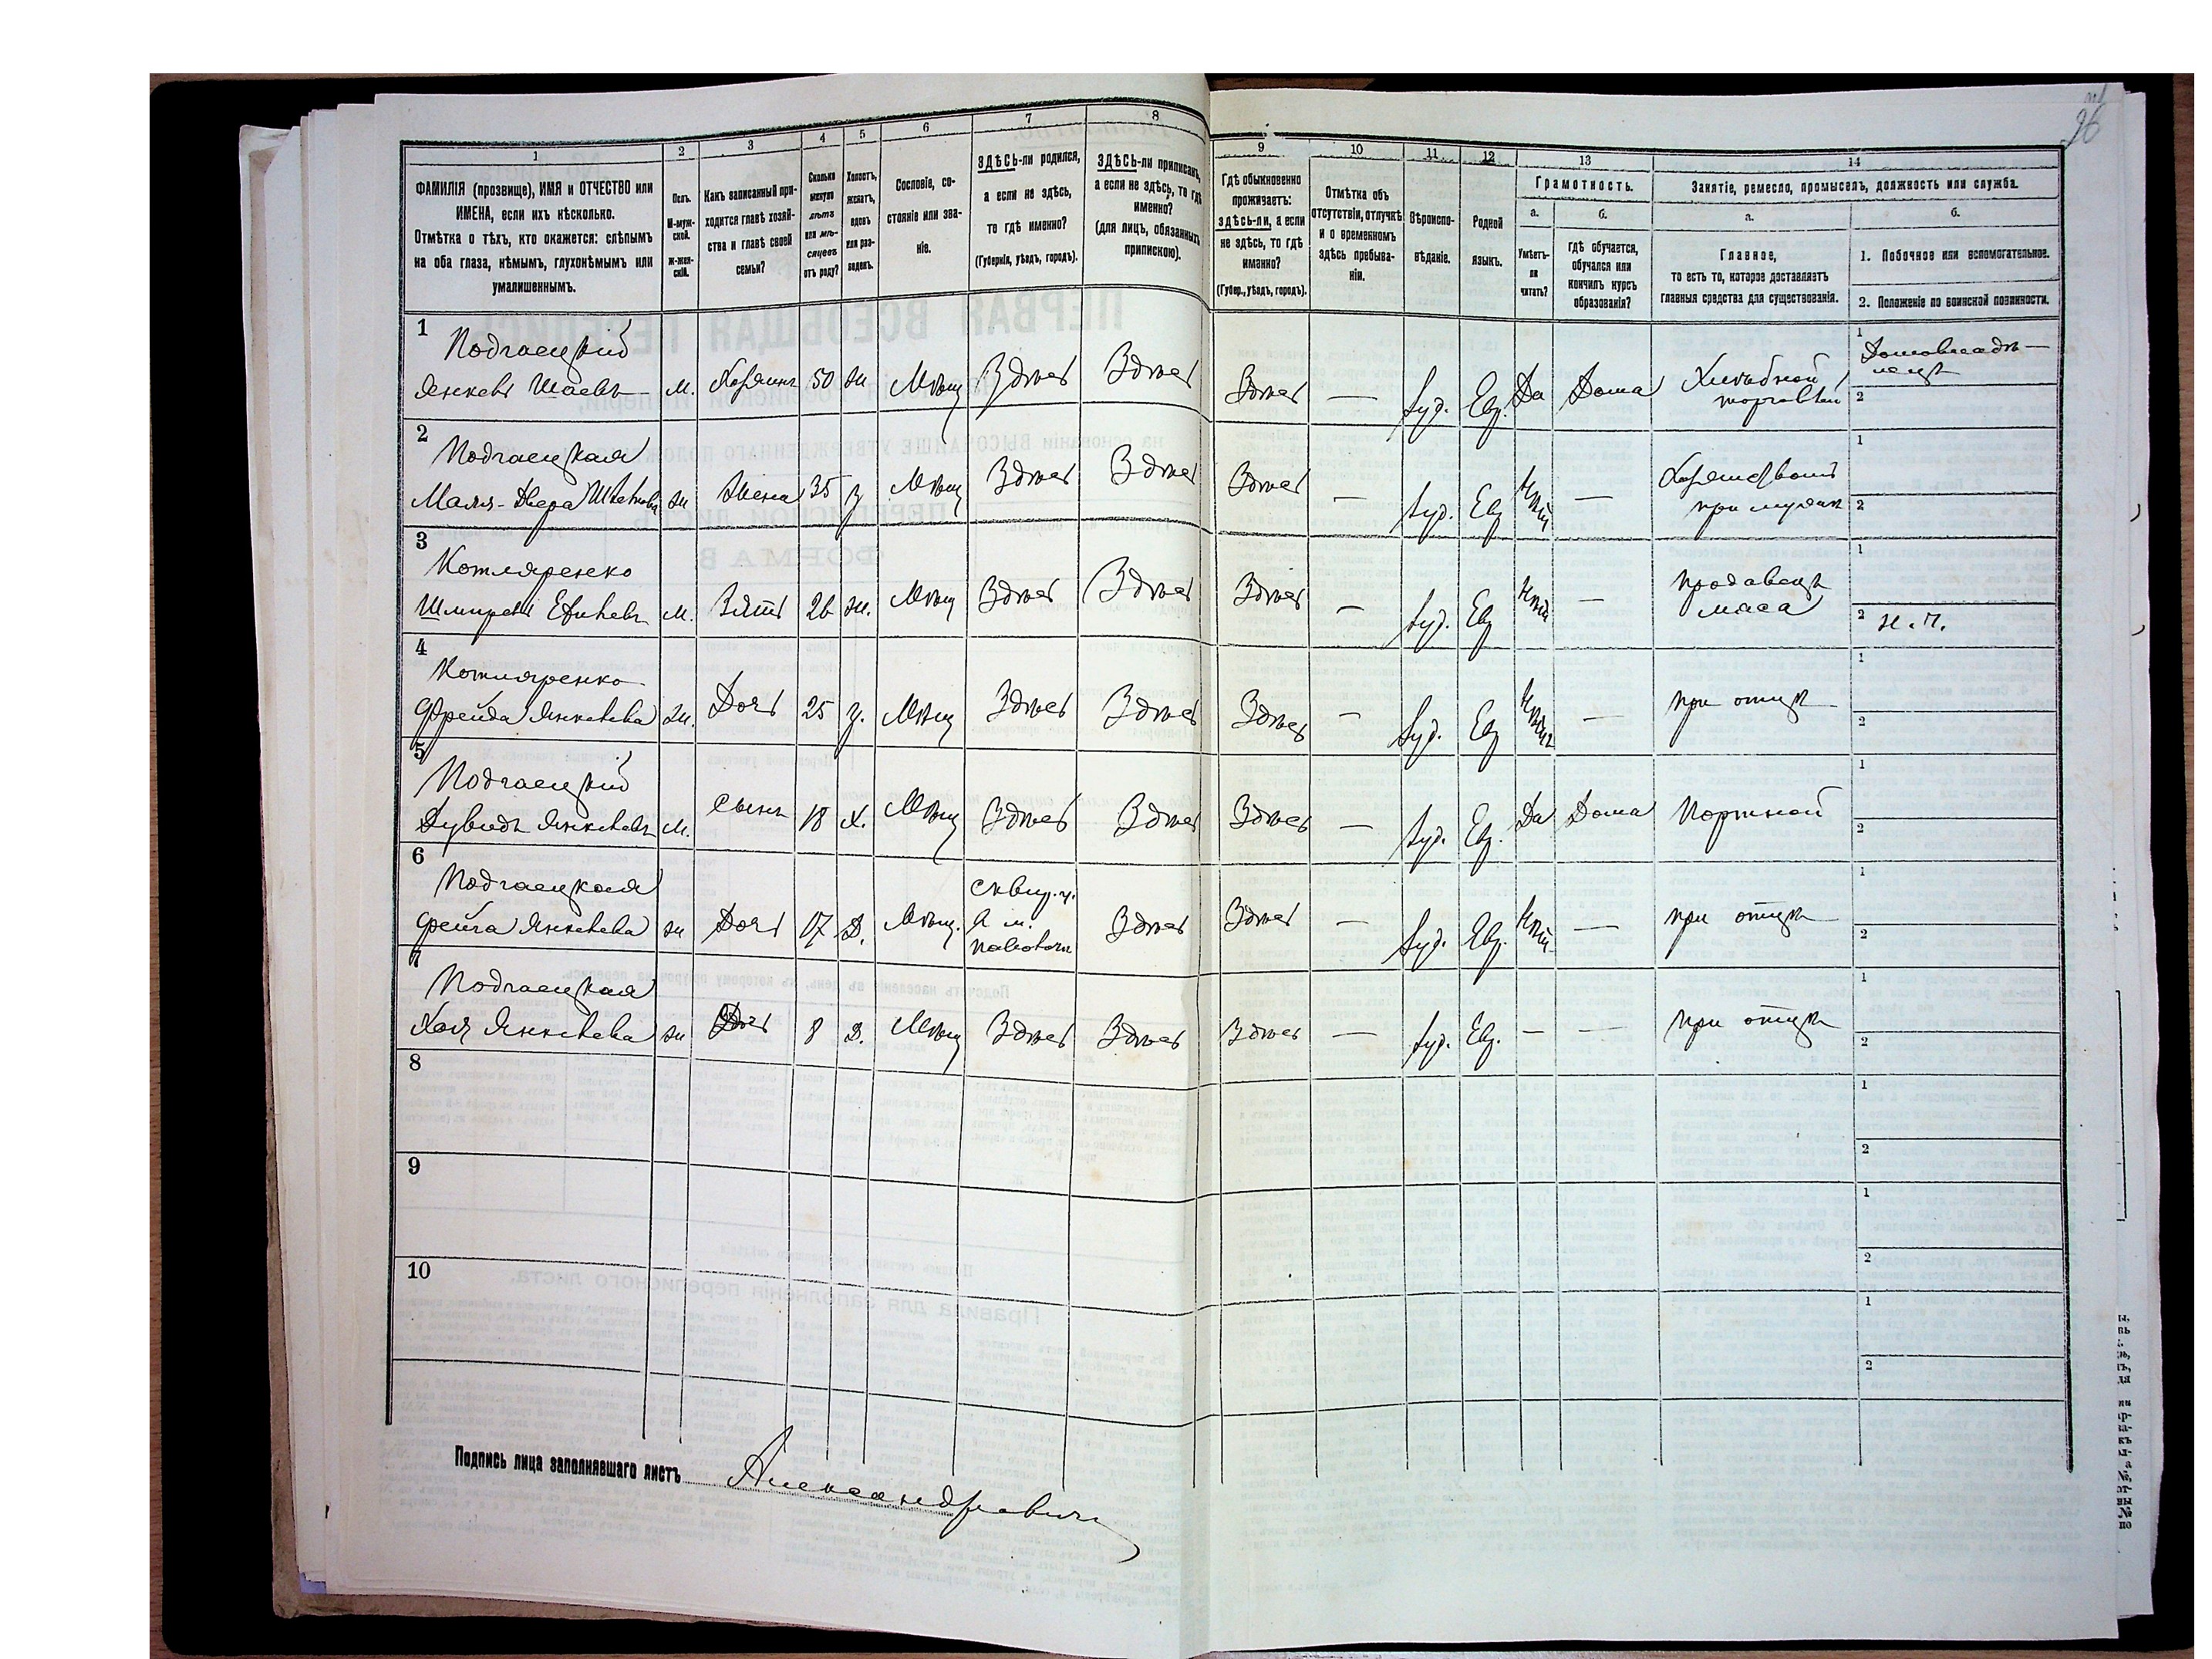 96
1
2
3
4
5
6
7
8
ФАМИЛІЯ (прозвище), ИМЯ и ОТЧЕСТВО или
ИМЕНА, если ихъ нѣсколько.
Отмѣтка о тѣхъ, кто окажется: слѣпымъ
на оба глаза, нѣмымъ, глухонѣмымъ или
умалишеннымъ.
Полъ.
М-муж-
ской.
Ж-жен-
скій.
Какъ записанный при-
ходится главѣ хозяй-
ства и главѣ своей
семьи?
Сколько
минуло
лѣтъ
или мѣ-
сяцевъ
отъ роду?
Холостъ,
женатъ,
вдовъ
или раз-
веденъ.
Сословіе, со-
стояніе или зва-
ніе.
ЗДѢСЬ-ли родился,
а если не здѣсь,
то гдѣ именно?
(Губернія, уѣздъ, городъ).
ЗДѢСЬ-ли приписанъ,
а если не здѣсь, то гдѣ
именно?
(для лицъ, обязанныхъ
припискою).
9
10
11
12
13
14
Гдѣ обыкновенно
проживаетъ:
здѣсь-ли, а если
не здѣсь, то гдѣ
именно?
(Губер., уѣздъ, городъ).
Отмѣтка объ
отсутствіи, отлучкѣ
и о временномъ
здѣсь пребыва-
ніи.
Вѣроиспо-
вѣданіе.
Родной
языкъ.
Грамотность.
а.
б.
Умѣетъ-
ли
читать?
гдѣ обучается,
обучался или
кончилъ курсъ
образованія?
Занятіе, ремесло, промыселъ, должность или служба.
а.
б.
Главное,
то есть то, которое доставляетъ
главныя средства для существованія.
1. Побочное или вспомогательное.
2. Положеніе по воинской повинности.
1
Подгаецкій
Янкевъ Шаевъ М. Хозяинъ 50 ж Мѣщ Здѣсь Здѣсь Здѣсь — Іуд. Евр. Да Дома Хлѣбной
торговлей
1 Домовладѣ-
лецъ
2
2
Подгаецкая
Маля-Двера ж Жена 35 з Мѣщ Здѣсь Здѣсь Здѣсь — Іуд. Евр Нѣт — Хозяйствомъ
при мужѣ
1
2
3
Котляренко
Шмиревъ М. Зять 26 ж. Мѣщ Здѣсь Здѣсь Здѣсь — Іуд. Евр Нѣт — продавецъ
мяса
1
2 н.ч.
4
Котляренко
Фрейда Янкелева ж. Дочь 25 з. Мѣщ Здѣсь Здѣсь Здѣсь — Іуд. Евр Нѣтъ — при отцѣ
1
2
5
Подгаецкій
Дувидъ Янкелевъ М. Сынъ 18 х. Мѣщ Здѣсь Здѣсь Здѣсь — Іуд. Евр. Да Дома Портной
1
2
6
Подгаецкая
Фейга Янкелева ж Дочь 17 Д. Мѣщ. Сквир. у.
м.
Паволочи
Здѣсь Здѣсь — Іуд. Евр. Нѣт — при отцѣ
1
2
7
Подгаецкая
Хая Янкелева ж Дочь 8 Д. Мѣщ Здѣсь Здѣсь Здѣсь — Іуд. Евр. — — при отцѣ
1
2
8
1
2
9
1
2
10
1
2
Подпись лица заполнявшаго листъ Александровичъ